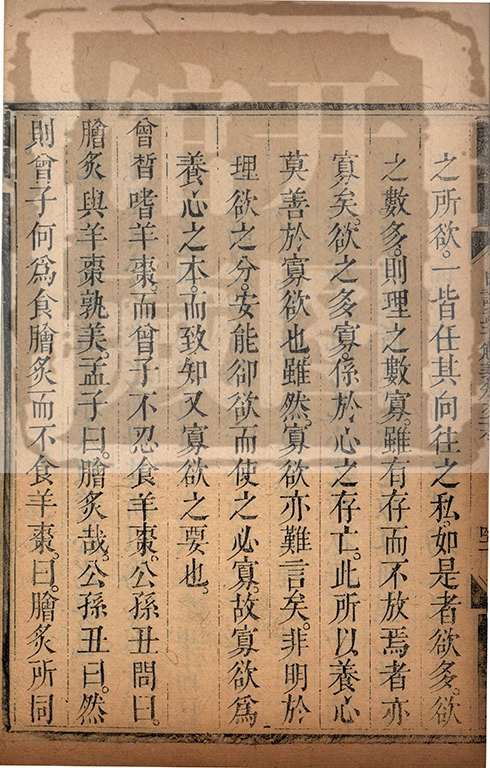 之所欲。一皆任其向往之私。如是者欲多。欲
之數多。則理之數寡。雖有存而不放焉者亦
寡矣。欲之多寡。係於心之存亡。此所以養心
莫善於寡欲也。雖然。寡欲亦難言矣。非明於
理欲之分。安能卻欲而使之必寡。故寡欲爲
養心之本。而致知又寡欲之要也。
曾晳嗜羊棗。而曾子不忍食羊棗。公孫丑問曰。
膾炙與羊棗孰美。孟子曰。膾炙哉。公孫丑曰。然
則曾子何爲食膾炙而不食羊棗。曰。膾炙所同